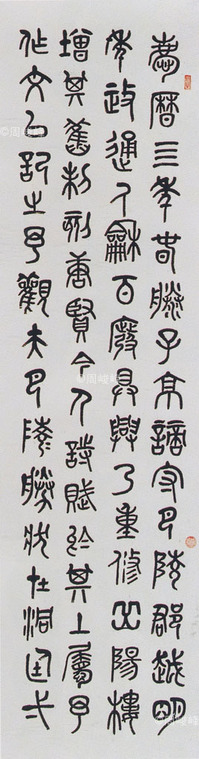 慶曆四年春滕子京謫守巴陵郡越明
年政通人龢百廢具興乃重修岳陽樓
增其舊制刻唐賢今人詩賦於其上屬予
作文以記之予觀夫巴陵勝狀在洞庭弌